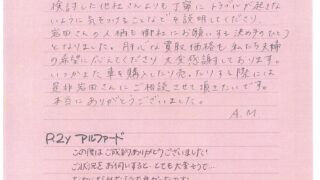 検討した他社さんよりも丁寧にトラブルが起きな
いように気をつけることなどを説明してくださり、
岩田さんの人柄も御社にお願いする決め手のひとつ
となりました。肝心な買取価格も私たち夫婦
の希望に応えてくださり大変感謝しております。
いつかまた車を購入したり売ったりする際には
是非岩田さんにご相談させて頂きたいです。
本当にありがとうございました。
A.M
R2y アルファード
この度はご成約ありがとうございました!
ご状況をお伺いすると、とても大変そうで…